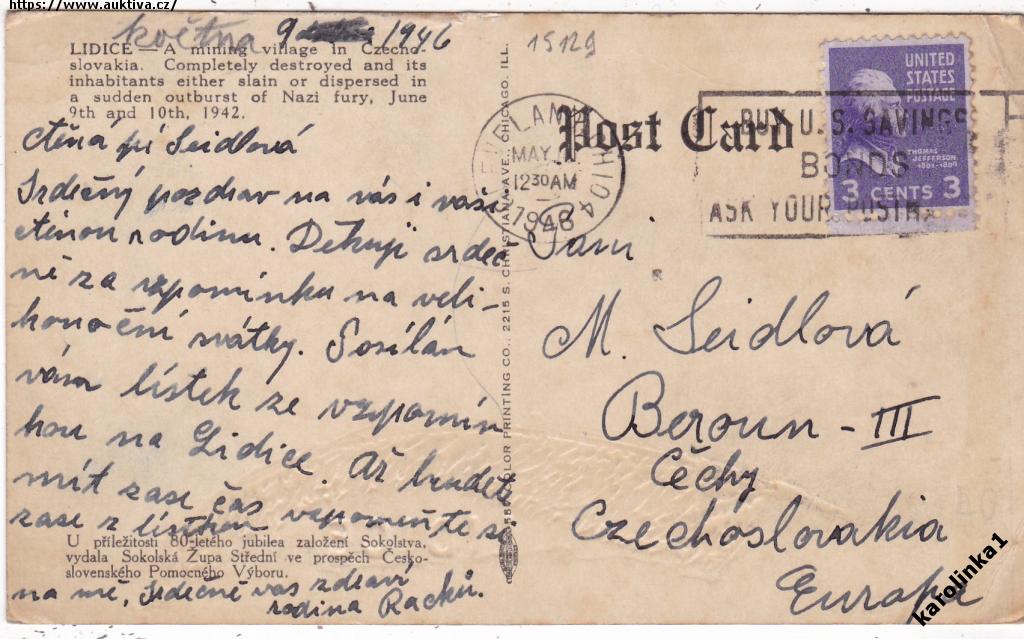 https://www.auktiva.cz/
května 9 1946
15129
LIDICE — A mining village in Czecho-
slovakia. Completely destroyed and its
inhabitants either slain or dispersed in
a sudden outburst of Nazi fury, June
9th and 10th, 1942.
Ctěná pí Seidlová
Srdečný pozdrav na vás i vaši
ctěnou rodinu. Děkuji srdeč
ně za vzpomínku na veli-
konoční svátky. Posílán
vám lístek ze vzpomín
kou na Lidice. Až budete
mít zase čas vzpomeňte si
zase z lístkem
U příležitosti 80-letého jubilea založení Sokolstva,
vydala Sokolská Župa Střední ve prospěch Česko-
slovenského Pomocného Výboru.
na mě, srdečně vás zdraví
rodina Racků.
COLOR PRINTING CO., 2215 S. CHRISTIANA AVE., CHICAGO, ILL.
Post Card
CLEVELAND OHIO
MAY
12 30 AM
1946
BUY U.S. SAVINGS
BONDS
ASK YOUR POSTM
UNITED
STATES
POSTAGE
THOMAS
JEFFERSON
1801-1809
3 CENTS 3
Paní
M. Seidlová
Beroun - III
Čechy
Czechoslovakia
Europa
karolinka1